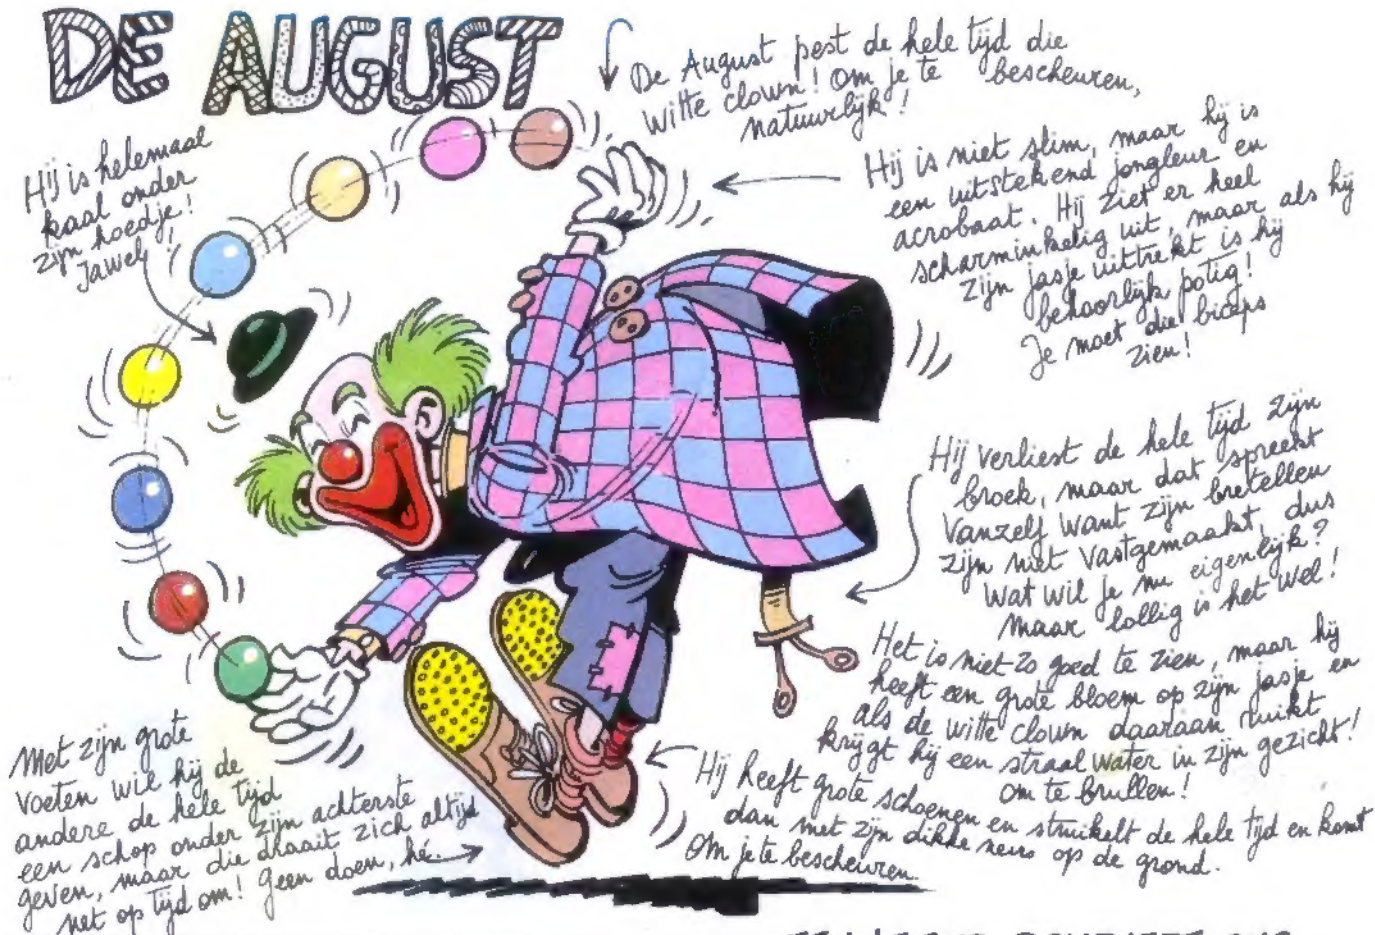 DE AUGUST
De August pest de hele tijd die
witte clown! Om je te bescheuren,
natuurlijk!
Hij is helemaal
kaal onder
zijn hoedje!
Jawel!
Hij is niet slim, maar hij is
een uitstekend jongleur en
acrobaat. Hij ziet er heel
scharminkelig uit, maar als hij
zijn jasje uittrekt is hij
behoorlijk potig!
Je moet die biceps
zien!
Hij verliest de hele tijd zijn
broek, maar dat spreekt
vanzelf want zijn bretellen
zijn niet vastgemaakt, dus
wat wil je nu eigenlijk?
Maar lollig is het wel!
Het is niet zo goed te zien, maar hij
heeft een grote bloem op zijn jasje en
als de witte clown daaraan ruikt
krijgt hij een straal water in zijn gezicht!
Om te brullen!
Hij heeft grote schoenen en struikelt de hele tijd en komt
dan met zijn dikke neus op de grond.
Om je te bescheuren.
Met zijn grote
voeten wil hij de
andere de hele tijd
een schop onder zijn achterste
geven, maar die draait zich altijd
net op tijd om! Geen doen, hé.